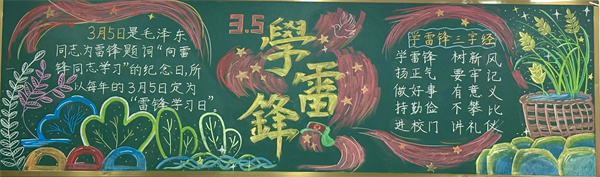 3月5日是毛泽东
同志为雷锋题词“向雷
锋同志学习”的纪念日,所
以每年的3月5日定为
“雷锋学习日”
3.5
學雷鋒
学雷锋三字经
学雷锋 树新风
扬正气 要牢记
做好事 有意义
持勤俭 不攀比
进校门 讲礼仪